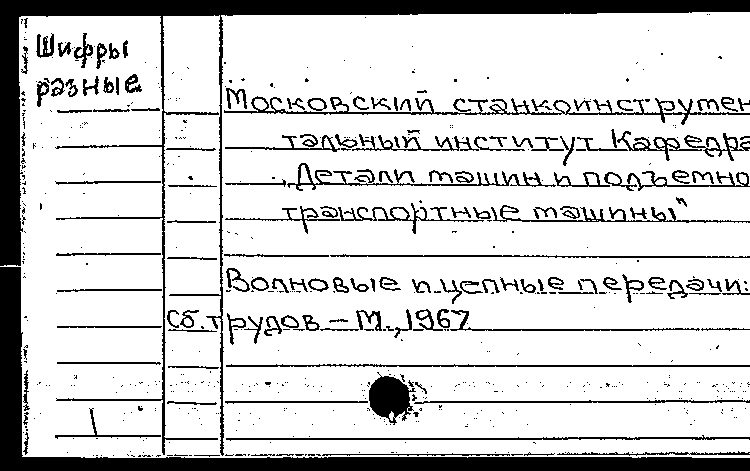 Шифры
разные
Московский станкоинструмен
тальный институт Кафедра
„Детали машин и подъемно
транспортные машины"
Волновые и цепные передачи:
Сб. трудов – М., 1967